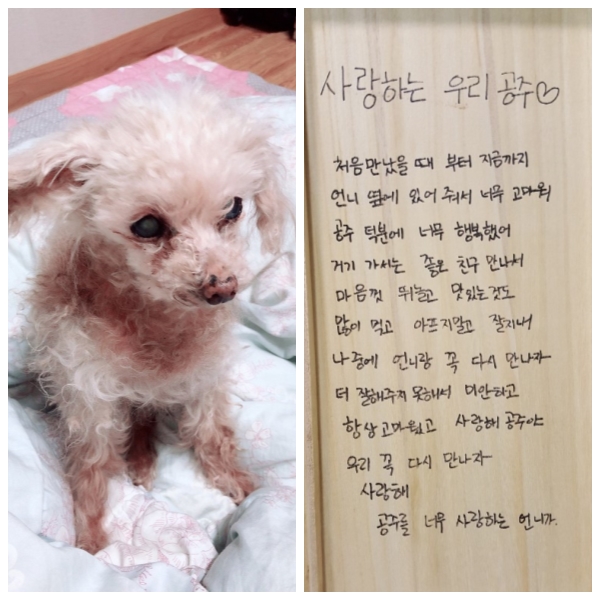 사랑하는 우리 공주♡
처음 만났을 때 부터 지금까지
언니 옆에 있어 줘서 너무 고마워
공주 덕분에 너무 행복했어
거기 가서는 좋은 친구 만나서
마음껏 뛰놀고 맛있는것도
많이 먹고 아프지말고 잘지내
나중에 언니랑 꼭 다시 만나자
더 잘해주지 못해서 미안하고
항상 고마웠고 사랑해 공주야
우리 꼭 다시 만나자
사랑해
공주를 너무 사랑하는 언니가.